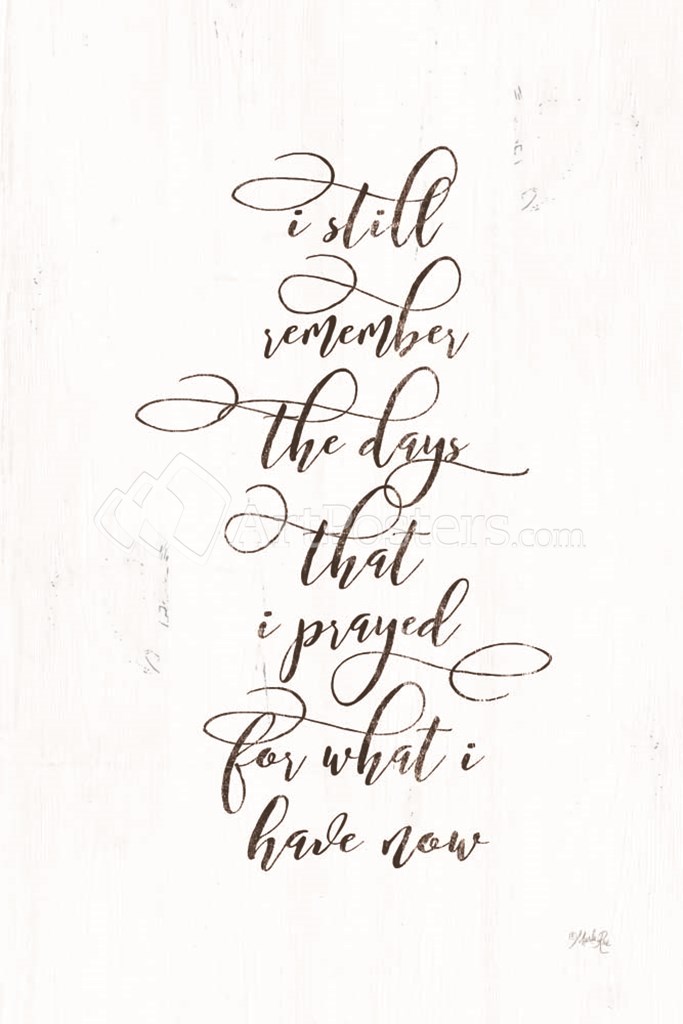 i still
remember
the days
ArtPosters.com
that
i prayed
for what i
have now
©Marla Rae